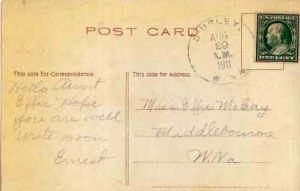 POST CARD
SHIRLEY
AUG
29
A.M.
1911
U.S. POSTAGE
ONE CENT
This side for Correspondence.
This side for Address.
Hello Aunt
Effie Hope
you are well
write soon
Ernest
Miss Effie McCay
Middlebourne
W. Va